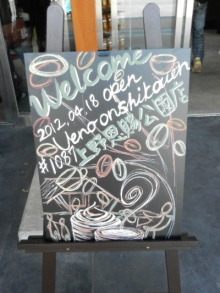 Welcome
2012.04.18 open
Uenoonshikouen
#1087 上野恩賜公園店